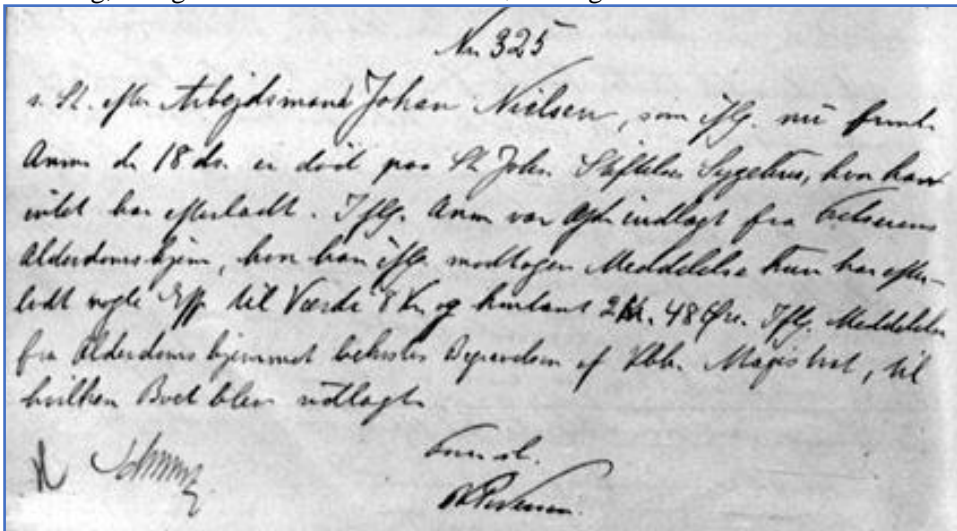 Nr. 325
s. St. efter Arbejdsmand Johan Nielsen, som iflg. nu fremk.
Anm. d. 18 ds. er død paa St. Johs. Stiftelses Sygehus, hvor han
intet har efterladt. Iflg. Anm. var Afd. indlagt fra Frelserens
Alderdomshjem, hvor han iflg. modtagen Meddelelse kun har efter-
ladt nogle Eff. til Værdi 8 Kr. og kontant 2 Kr. 48 Øre. Iflg. Meddelelse
fra Alderdomshjemmet bekostes Begravelsen af Kbh. Magistrat, til
hvilken Boet blev udlagt.